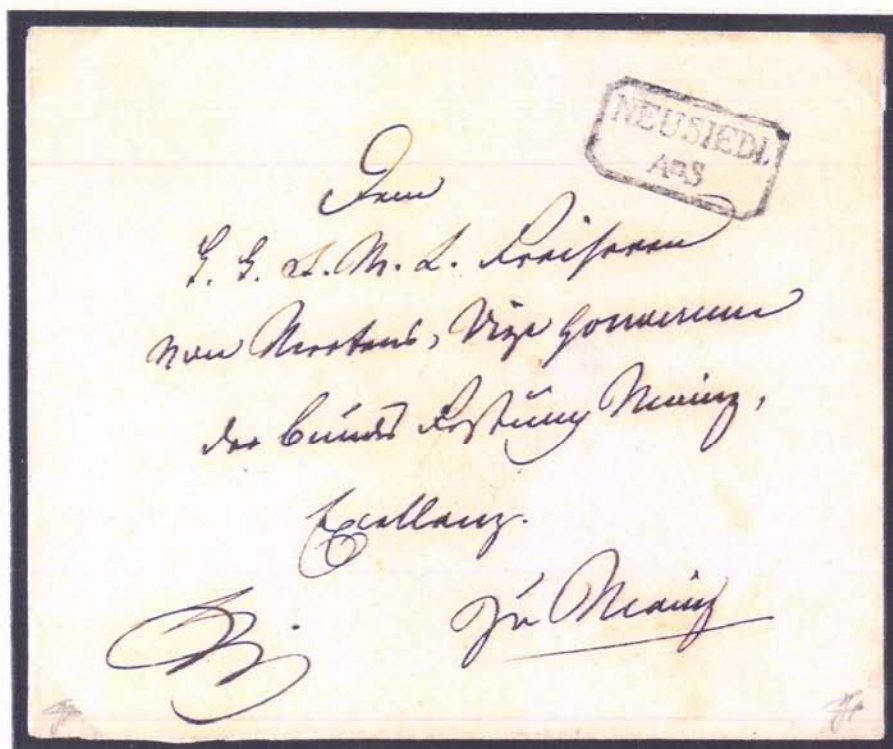 NEUSIEDL
AmS
Dem
K. K. F. M. L. Freiherrn
von Mertens, Vize Gouverneur
der Bundes Festung Mainz,
Excellenz.
zu Mainz